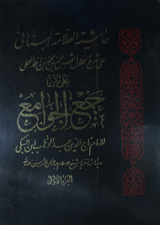 حاشية العلامة البناني
على شرح الجلال شمس الدين محمد بن أحمد المحلي
على متن
جمع الجوامع
للإمام تاج الدين عبد الوهاب ابن السبكي
الجزء الأول